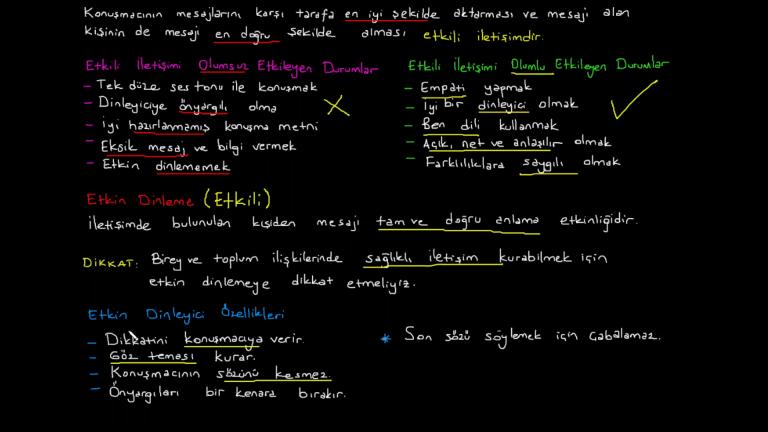 Konuşmacının mesajlarını karşı tarafa en iyi şekilde aktarması ve mesajı alan
kişinin de mesajı en doğru şekilde alması etkili iletişimdir.
Etkili İletişimi Olumsuz Etkileyen Durumlar
- Tek düze ses tonu ile konuşmak
- Dinleyiciye önyargılı olma
- İyi hazırlanmamış konuşma metni
- Eksik mesaj ve bilgi vermek
- Etkin dinlememek
Etkili İletişimi Olumlu Etkileyen Durumlar
- Empati yapmak
- İyi bir dinleyici olmak
- Ben dili kullanmak
- Açık, net ve anlaşılır olmak
- Farklılıklara saygılı olmak
Etkin Dinleme (Etkili)
İletişimde bulunulan kişiden mesajı tam ve doğru anlama etkinliğidir.
DİKKAT: Birey ve toplum ilişkilerinde sağlıklı iletişim kurabilmek için
etkin dinlemeye dikkat etmeliyiz.
Etkin Dinleyici Özellikleri
- Dikkatini konuşmacıya verir.
- Göz teması kurar.
- Konuşmacının sözünü kesmez.
- Önyargıları bir kenara bırakır.
* Son sözü söylemek için çabalamaz.